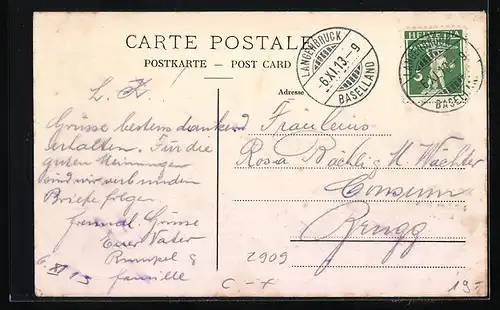 CARTE POSTALE
POSTKARTE - POST CARD
Adresse
LANGENBRUCK
-6.XI.13-9
BASELLAND
HELVETIA
5
BASELLAND
L. K.
Grüsse bestens dankend
erhalten. Für die
guten Meinungen
sind wir verbunden
Briefe folgen
freundl. Grüsse
Euer Vater
Rumpel &
Familie
6. XI 13
Fräuleins
Rosa Bächli & M. Wächter
Consum
Brugg
2909
C - x
19-